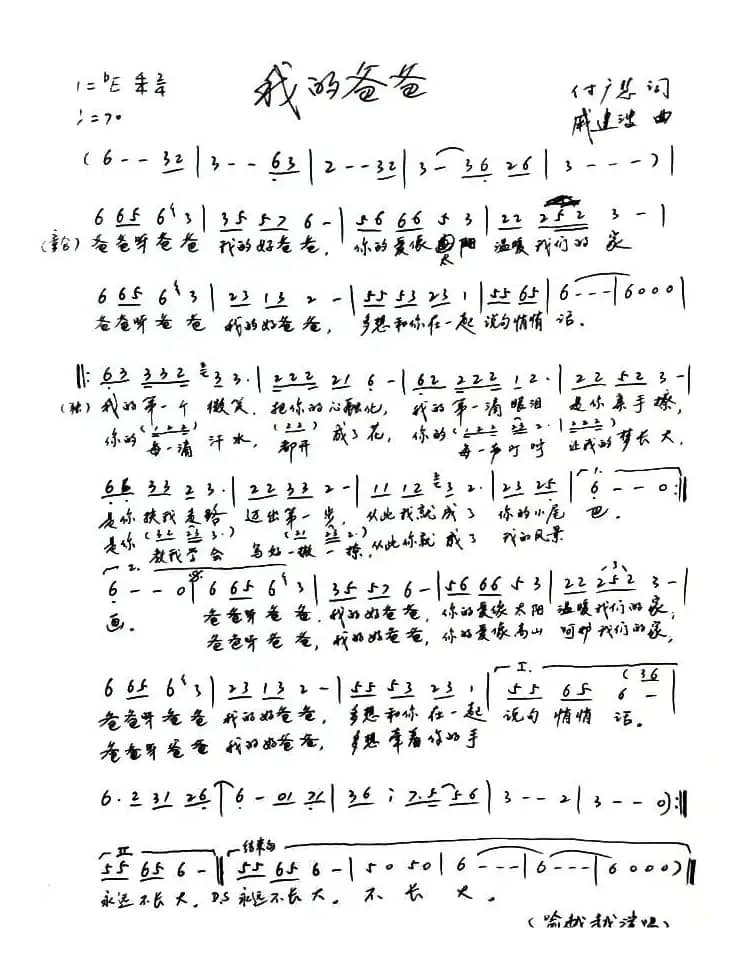 我的爸爸
1=♭E 4/4 2/4
♩=70
付广慧 词
戚建波 曲
(6 - - 32 | 3 - - 63 | 2 - - 32 | 3 - 36 26 | 3 - - -) |
6 65 6 3 | 35 57 6 - | 56 66 5 3 | 22 252 3 - |
(童合) 爸爸呀爸爸 我的好爸爸, 你的爱像太阳 温暖我们的家
6 65 6 3 | 23 13 2 - | 55 53 23 1 | 55 65 | 6 - - - | 6 0 0 0 |
爸爸呀爸爸 我的好爸爸, 多想和你在一起 说句悄悄话.
‖: 63 332 3 3· | 222 21 6 - | 62 222 1 2· | 22 52 3 - |
(独) 我的第一个微笑, 把你的心融化, 我的第一滴眼泪 是你亲手擦,
你的(122)每一滴汗水, (22)都开成了花, 你的(122 232·)每一声叮咛(222)让我的梦长大.
66 33 23· | 22 33 2 - | 11 12 3 2· | 23 25 | 1. 6 - - 0 :‖
是你扶我走路 迈出第一步, 从此我就成了 你的小尾巴.
是你(32 23 3·)教我学会(11 22 2·)写好一撇一捺, 从此你就成了 我的风景
2. 6 - - 0 | 6 65 6 3 | 35 57 6 - | 56 66 5 3 | 22 252 3 - |
画. 爸爸呀爸爸, 我的好爸爸, 你的爱像太阳 温暖我们的家;
爸爸呀爸爸, 我的好爸爸, 你的爱像高山 呵护我们的家,
6 65 6 3 | 23 13 2 - | 55 53 23 1 | I. 55 65 6 - (36
爸爸呀爸爸 我的好爸爸, 多想和你在一起 说句悄悄话.
爸爸呀爸爸 我的好爸爸, 多想牵着你的手
6·2 31 26 | 6 - 01 71 | 36 i 7·5 56 | 3 - - 2 | 3 - - 0) :‖
II. 55 65 6 - ‖ 结束句 55 65 6 - | 50 50 | 6 - - - | 6 - - - | 6 0 0 0) ‖
永远不长大. D.S 永远不长大. 不长大.